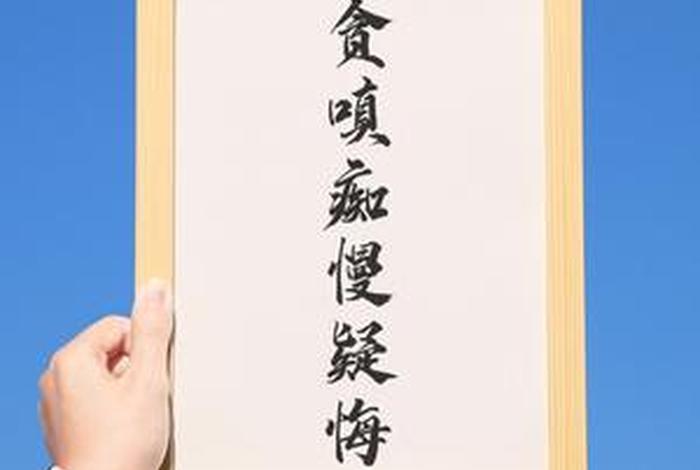 贪嗔痴慢疑悔